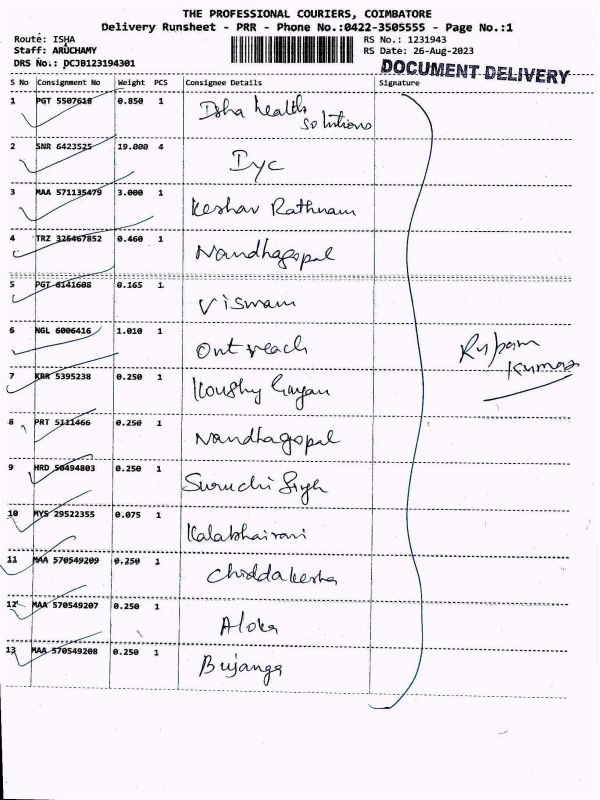 THE PROFESSIONAL COURIERS, COIMBATORE
Delivery Runsheet - PRR - Phone No.:0422-3505555 - Page No.:1
Route: ISHA
RS No.: 1231943
Staff: ARUCHAMY
RS Date: 26-Aug-2023
DRS No.: DCJB123194301
DOCUMENT DELIVERY
S No Consignment No Weight PCS Consignee Details Signature
1 PGT 5507618 0.850 1 Isha health
solutions
2 SNR 6423525 19.000 4 Iyc
3 MAA 571135479 3.000 1 Keshav Rathnam
4 TRZ 325467852 0.460 1 Nandhagopal
5 PGT 6141608 0.165 1 Viswam
6 NGL 6006416 1.010 1 Outreach
Rupam
Kumar
7 KRR 5395238 0.250 1
8 PRT 5111466 0.250 1 Nandhagopal
9 HRD 50494803 0.250 1 Suruchi Singh
10 MYS 29522355 0.075 1 Kalabhairavi
11 MAA 570549209 0.250 1
12 MAA 570549207 0.250 1 Aloka
13 MAA 570549208 0.250 1 Bujanga